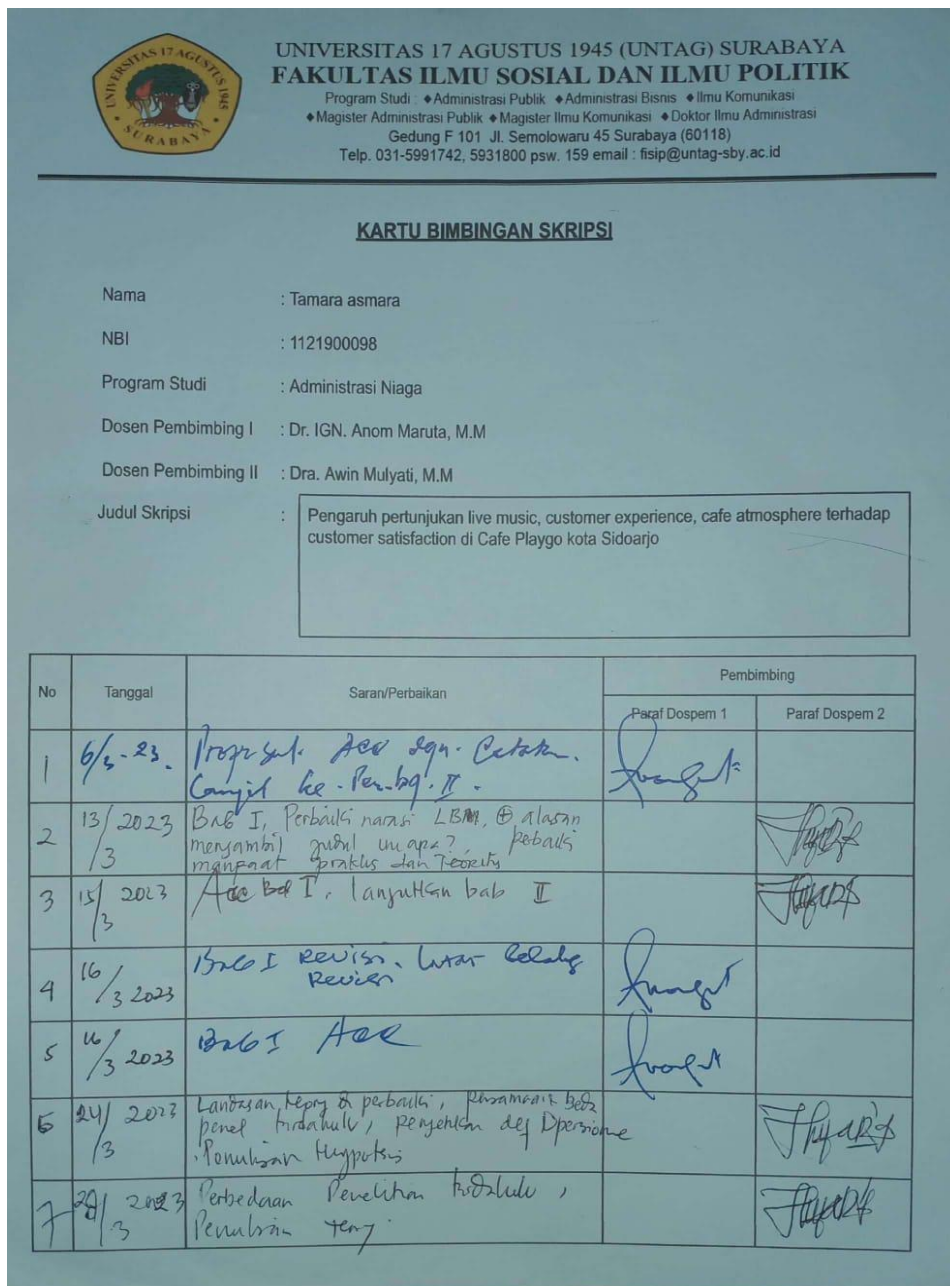 UNIVERSITAS 17 AGUSTUS 1945
SURABAYA
UNIVERSITAS 17 AGUSTUS 1945 (UNTAG) SURABAYA
FAKULTAS ILMU SOSIAL DAN ILMU POLITIK
Program Studi : ♦Administrasi Publik ♦Administrasi Bisnis ♦Ilmu Komunikasi
♦Magister Administrasi Publik ♦Magister Ilmu Komunikasi ♦Doktor Ilmu Administrasi
Gedung F 101 Jl. Semolowaru 45 Surabaya (60118)
Telp. 031-5991742, 5931800 psw. 159 email : fisip@untag-sby.ac.id
KARTU BIMBINGAN SKRIPSI
Nama : Tamara asmara
NBI : 1121900098
Program Studi : Administrasi Niaga
Dosen Pembimbing I : Dr. IGN. Anom Maruta, M.M
Dosen Pembimbing II : Dra. Awin Mulyati, M.M
Judul Skripsi : Pengaruh pertunjukan live music, customer experience, cafe atmosphere terhadap
customer satisfaction di Cafe Playgo kota Sidoarjo
No Tanggal Saran/Perbaikan Pembimbing
Paraf Dospem 1 Paraf Dospem 2
1 6/3-23. Acc dgn. Catatan.
ke
2 13/3 2023 Bab I, Perbaiki narasi LBM, + alasan
mengambil judul apa?, Perbaiki
manfaat praktis dan Teoritis
3 15/3 2023 Acc Bab I, lanjutkan bab II
4 16/3 2023 Bab I Revisi. Latar belakang
Revisi
5 16/3 2023 Bab I Acc
6 24/3 2023 Landasan perbaiki,
penel terdahulu, def
Penulisan
7 3 2023 Perbedaan Penelitian terdahulu,
Penulisan